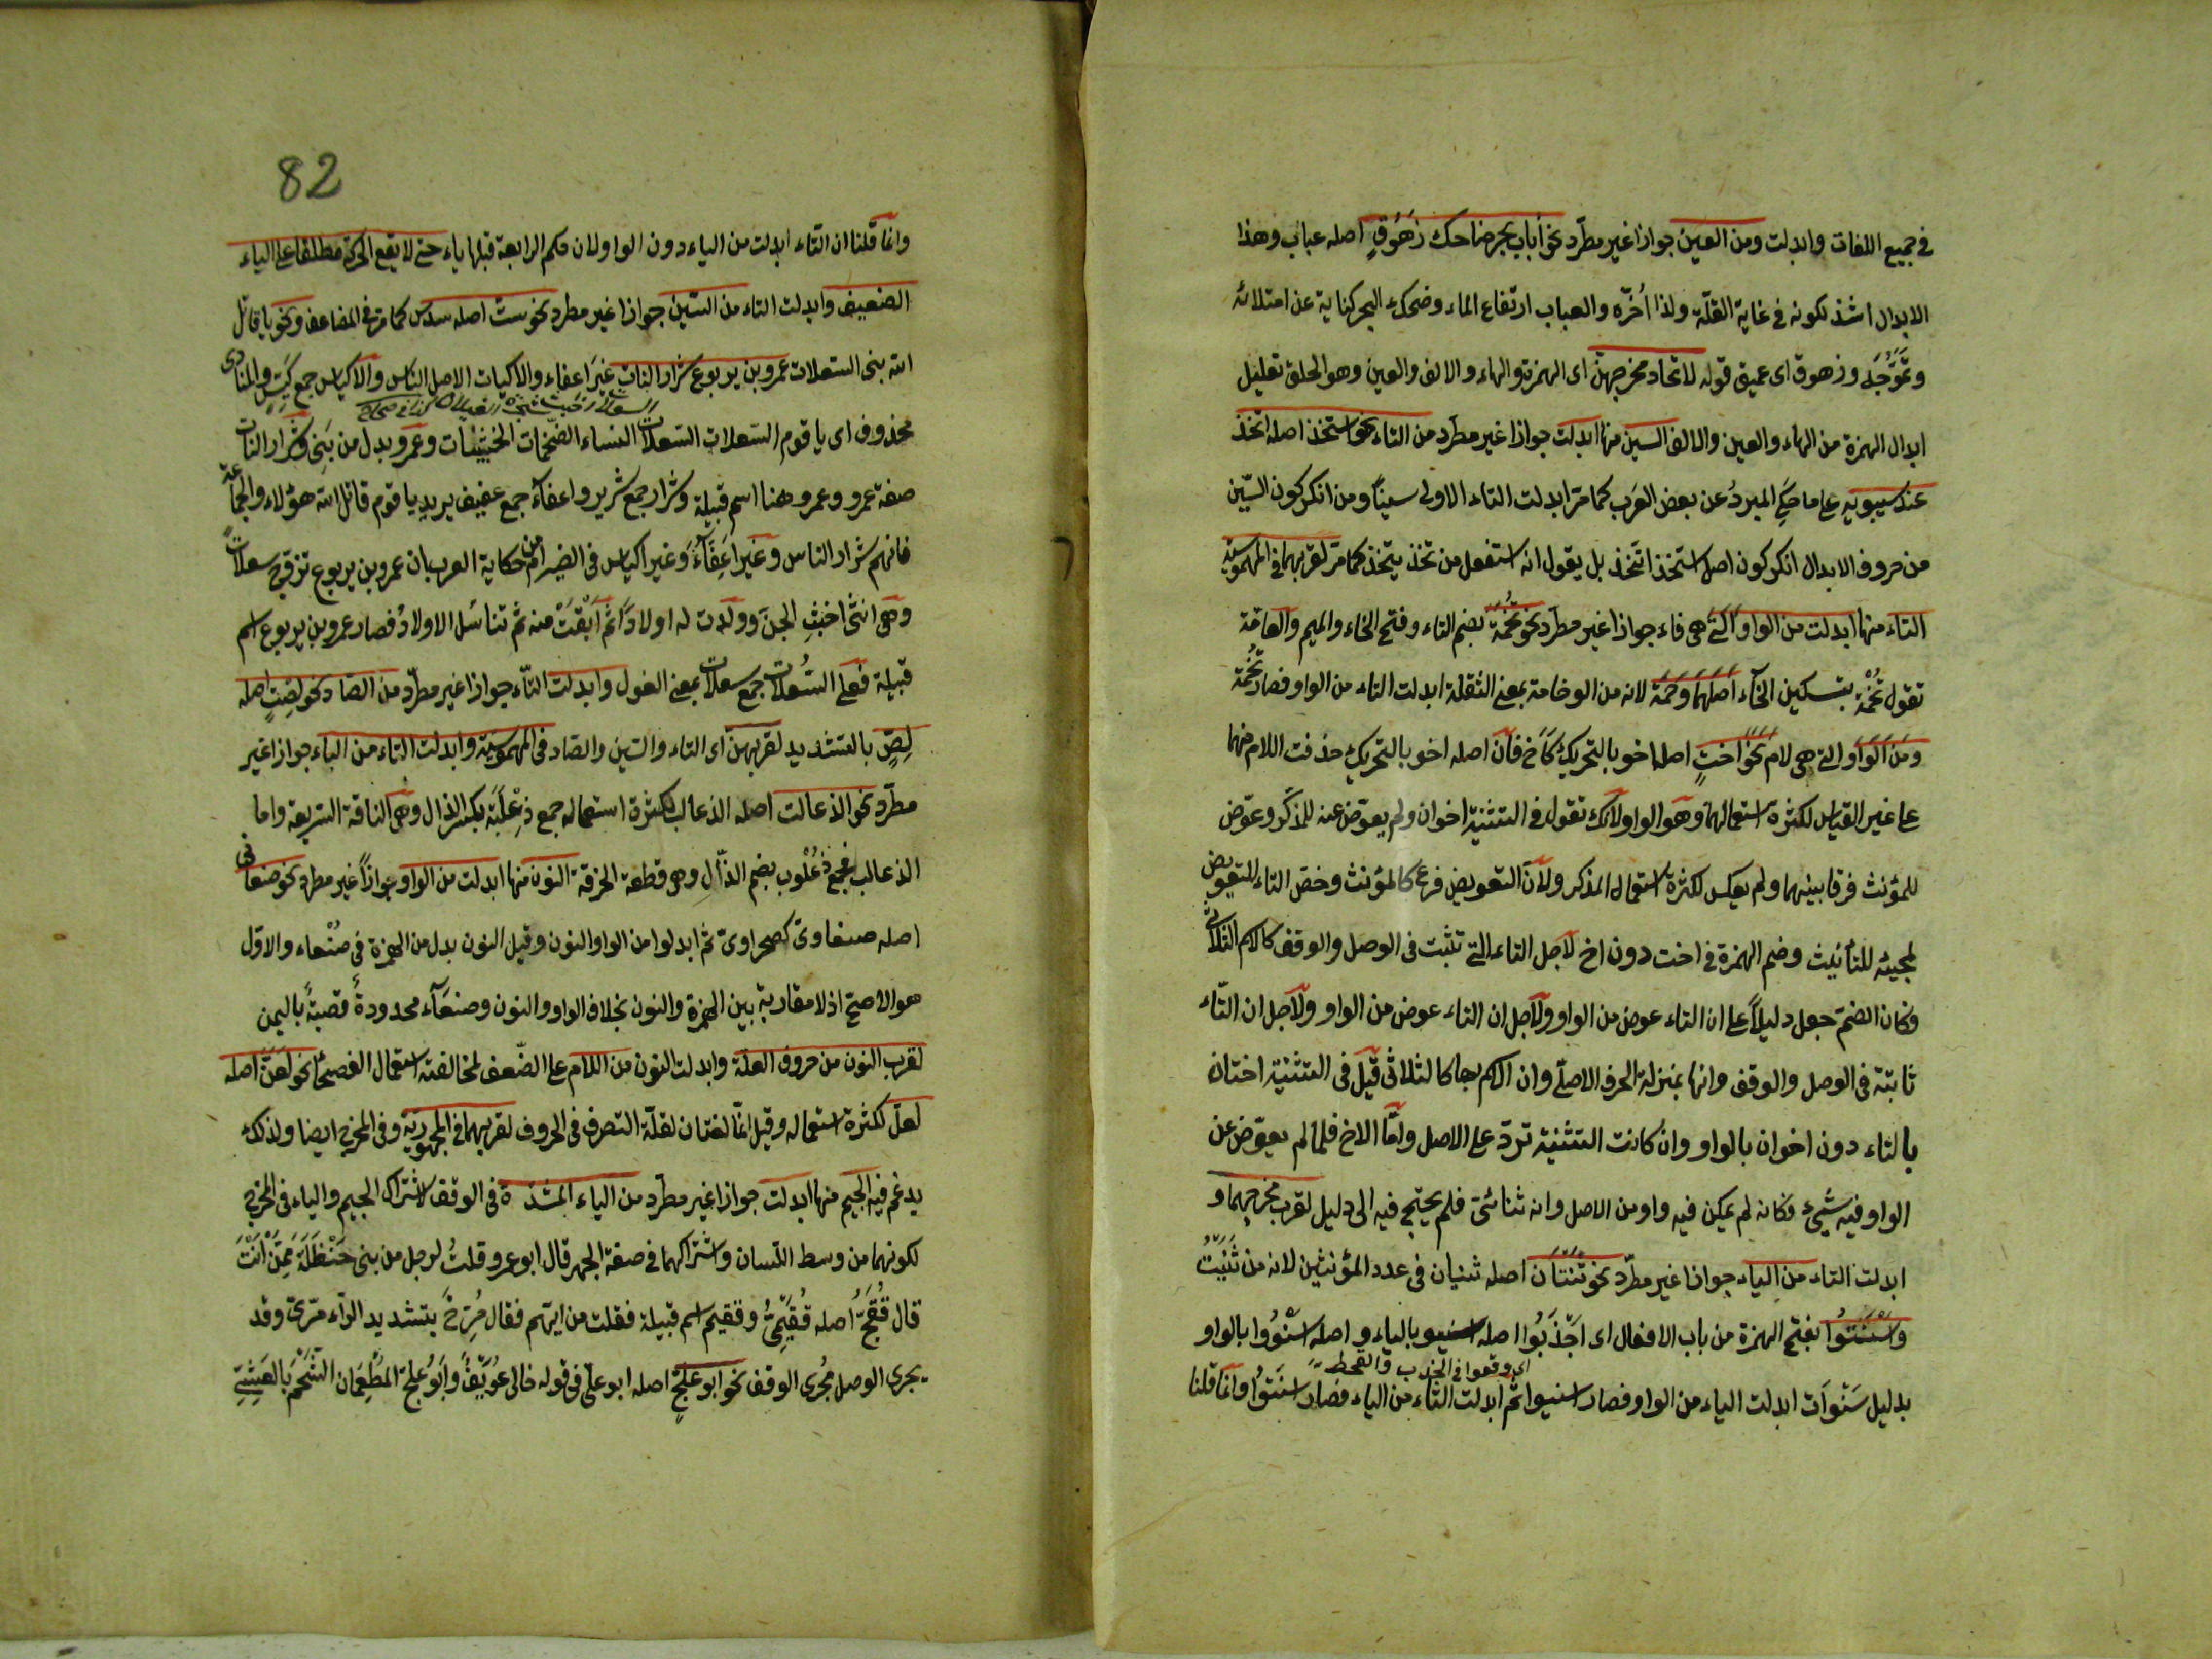 في جميع اللغات وابدلت ومن العين جوازا غير مطّرد نحو أباب بحر ضاحك زَهُوقٍ اصله عباب وهذا
الابدال اشذ لكونه في غاية القلّة ولذا أخّره والعباب ارتفاع الماء وضحك البحر كناية عن امتلائه
وتموّجه وزهوق اى عميق قوله لاتحاد مخرجهن اى الهمزة والهاء والالف والعين وهو الحلق تعليل
ابدال الهمزة من الهاء والعين والالف السين منها ابدلت جوازا غير مطّرد من التاء نحو استخذ اصله اتخذ
عند سيبويه على ما حكى المبردُ عن بعض العرَب كما مرّ ابدلت التاء الاولى سيناً ومن انكر كون السّين
من حروف الابدال انكر كون اصل استخذ اتّخذ بل يقول انه استفعل من تخذ يتخذ كما مرّ لقربهما في المهموسية
التاء منها ابدلت من الواو التي هي فاء جوازا غير مطّرد نحو تُخَمَة بضم التاء وفتح الخاء والميم والعامّة
تقول تُخْمَة بتسكين الخآء اصلهما وخمة لانه من الوخامة بمعنى الثقلة ابدلت التاء من الواو فصار تُخَمة
ومن الواو التي هي لام نحو اختٍ اصلها اخو بالتحريك كأخ فان اصله اخو بالتحريك حذفت اللام منهما
على غير القياس لكثرة استعمالهما وهو الواو لانك تقول في التثنية اخوان ولم يعوّض عنه للمذكّر وعوّض
للمؤنث فرقا بينهما ولم يعكس لكثرة استعمال المذكر ولانّ التعويض فرع كالمؤنث وخصّ التاء للتعويض
لمجيئه للتأنيث وضم الهمزة في اخت دون اخ لاجل التاء التي تثبت فى الوصل والوقف كالاسم الثلاثىّ
وكان الضمّ جعل دليلاً على ان التاء عوض من الواو ولاجل ان التاء عوض من الواو ولاجل ان التّاء
ثابتة فى الوصل والوقف وانها بمنزلة الحرف الاصلّى وان الاسم بها كالثلاثى قيل فى التثنية اختان
بالتاء دون اخوان بالواو وان كانت التثنية تردّ على الاصل وامّا الاخ فلما لم يعوّض عن
الواو فيه شيئ فكانه لم يكن فيه واو من الاصل وانه ثنائىّ فلم يحتج فيه الى دليل لقرب مخرجهما و
ابدلت التاء من الياء جوازا غير مطّرد نحو ثنتان اصله ثنيان فى عدد المؤنثين لانه من ثَنَيْتُ
واَسْنَتُوا بفتح الهمزة من باب الافعال اى اجْدَبُوا اصله اسنيو بالياء واصله اسْنَوُوا بالواو
اى وقعوا فى الجدب والقحط
بدليل سَنَوَات ابدلت الياء من الواو فصار اسنيوا ثم ابدلت التاء من الياء فصار اسنَتُوا وانما قلنا
82
وانما قلنا ان التاء ابدلت من الياء دون الواو لان حكم الرابعة قبلها ياء حتى لا يقع الحركة مطلقا على الياء
الضعيف وابدلت التاء من السّين جوازا غير مطرد نحو ستّ اصله سدس كما مرّ فى المضاعف ونحو يا قاتل
الله بنى السعلات عمرو بن يربوع شرار النات غيرَ اعفاء والاكيات الاصل الناس والاكياس جمع كيّسٍ والمنادى
السعلات كذا فى صحاح
محذوف اى يا قوم السّعلات السّعلات النساء الضّخمات الخبيثات وعمرو بدل من بَنِى وشرار النات
صفة عمرو وعمرو ههنا اسم قبيلة وشرار جمع شرير واعفآء جمع عفيف يريد يا قوم قاتل الله هؤلاء والجماعة
فانهم شرار الناس وغير اَعِفَّآءَ وغير اكياس فى الضير امن حكاية العرب ان عمرو بن يربوع تزوّج سعلاتً
وهى انثى اخبث الجنّ وولدت له اولاداً ثم اَبْقَتْ منه ثم تناسَل الاولادُ فصار عمرو بن يربوع اسم
قبيلة فعلى السّعلات جمع سعلات بمعنى الغول وابدلت التّاء جوازا غير مطرّد من الصّاد نحو لِصْتٍ اصله
لِصٍّ بالتشديد لقربهن اى التاء والسّين والصاد فى المهموسية وابدلت التاء من الباء جوازا غير
مطّرد نحو الذعالت اصله الذعالب لكثرة استعماله جمع ذِعْلَبَة بكسر الذال وهى الناقة السّريعة واما
الذعالب فجمع ذُعْلُوب بضم الذّالِ وهو قطعة الخرقة النون منها ابدلت من الواو جوازاً غير مطرد نحو صنعانى
اصله صنعاوىّ كصحراوىّ ثم ابدلوا من الواو النون وقيل النون بدل من الهمزة فى صنعاء والاوّل
هو الاصحّ اذ لا مقاربة بين الهمزة والنون بخلاف الواو والنون وصنعَآء ممدودةً قصبةٌ باليمن
لقرب النون من حروف العلّة وابدلت النون من اللام على الضّعف لمخالفته استعمال الفصحاء نحو لعنّ اصله
لعلّ لكثرة استعماله وقيل انّهما لغتان لقلّة التصرف فى الحروف لقربهما فى المجهورية وفى المخرج ايضا ولذلك
يدغم فيه الجيم منها ابدلت جوازا غير مطّرد من الياء المشدّدة فى الوقف لاشتراك الجيم والياء فى المخرج
لكونهما من وسط اللسان واشتراكهما فى صفة الجهر قال ابو عمرو قلتُ لرجل من بنى حَنْظَلَةَ مِمَّن اَنْتَ
قال فُقَيْمِجٌّ اصله فُقَيْمِىٌّ وفقيم اسم قبيلة فقلت من ايّهم فقال مُرِّجٌّ بتشديد الرّاء مرّىّ وقد
يجرى الوصل مُجْرى الوقف نحو ابو عَلِجٍّ اصله ابو علّى فى قوله خالى عُوَيْفٌ وابو عَلِجّ المُطْعِمَان الشّحْمَ بالعَشِجّ